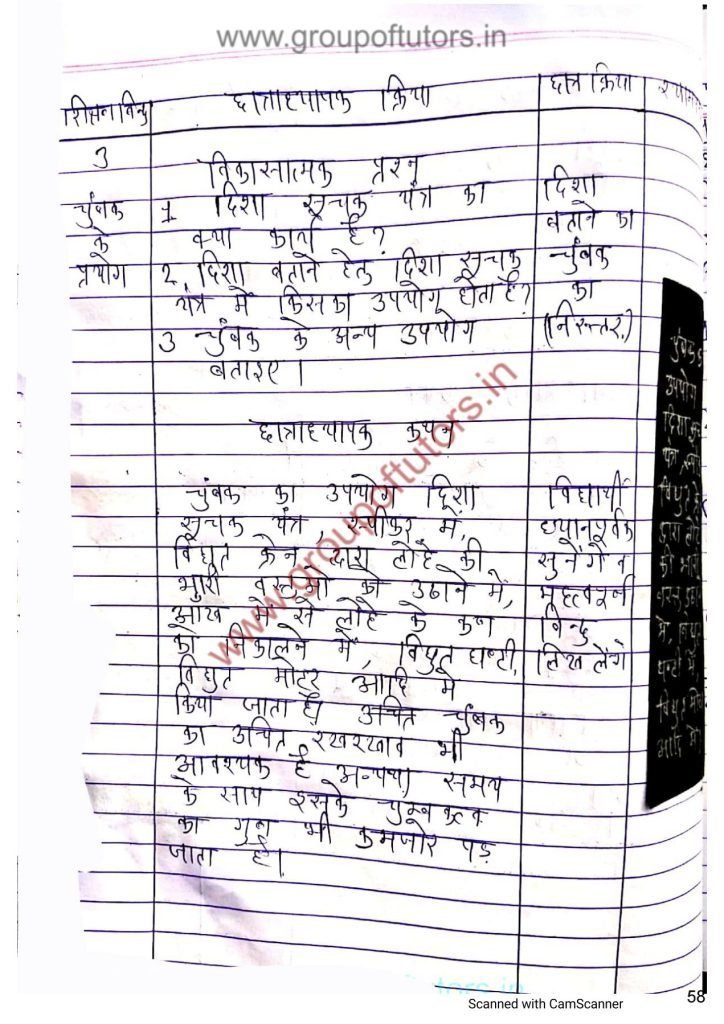 www.groupoftutors.in
शिक्षण बिन्दु
छात्राध्यापक क्रिया
छात्र क्रिया
3
चुंबक
के
प्रयोग
विकासात्मक प्रश्न
1 दिशा सूचक यंत्र का
क्या कार्य है?
2 दिशा बताने हेतु दिशा सूचक
यंत्र में किसका उपयोग होता है?
3 चुंबक के अन्य उपयोग
बताइए।
दिशा
बताने का
चुंबक
का
(निरुत्तर)
छात्राध्यापक कथन
चुंबक का उपयोग दिशा
सूचक यंत्र, स्पीकर में,
विद्युत क्रेन द्वारा लोहे की
भारी वस्तुओ को उठाने में,
आंख में से लोहे के कण
को निकालने में, विद्युत घण्टी,
विद्युत मोटर आदि मे
किया जाता है। अचित चुंबक
का उचित रखरखाव भी
आवश्यक है अन्यथा समय
के साथ इसके चुम्बकत्व
का गुण भी कमजोर पड़
जाता है।
विद्यार्थी
ध्यानपूर्वक
सुनेंगे व
महत्वपूर्ण
बिन्दु
लिख लेंगे
उपयोग
आदि में
www.groupoftutors.in
Scanned with CamScanner
58